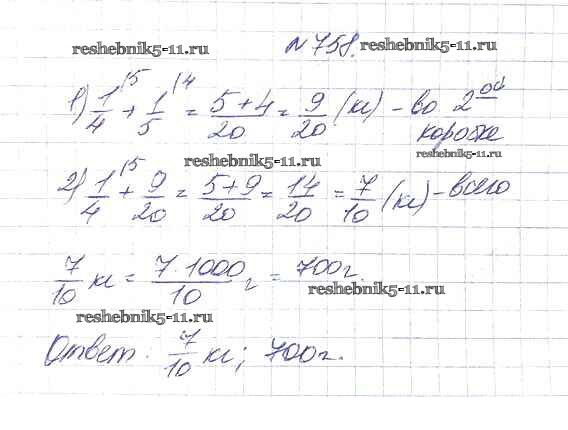 reshebnik5-11.ru №758. reshebnik5-11.ru
1) 1/4 (5 + 1/5 (4 = 5+4/20 = 9/20 (кг) - во 2ой
коробке
reshebnik5-11.ru
reshebnik5-11.ru
2) 1/4 (5 + 9/20 = 5+9/20 = 14/20 = 7/10 (кг) - всего
7/10 кг = 7·1000/10 г = 700г.
reshebnik5-11.ru
reshebnik5-11.ru
Ответ: 7/10 кг; 700г.